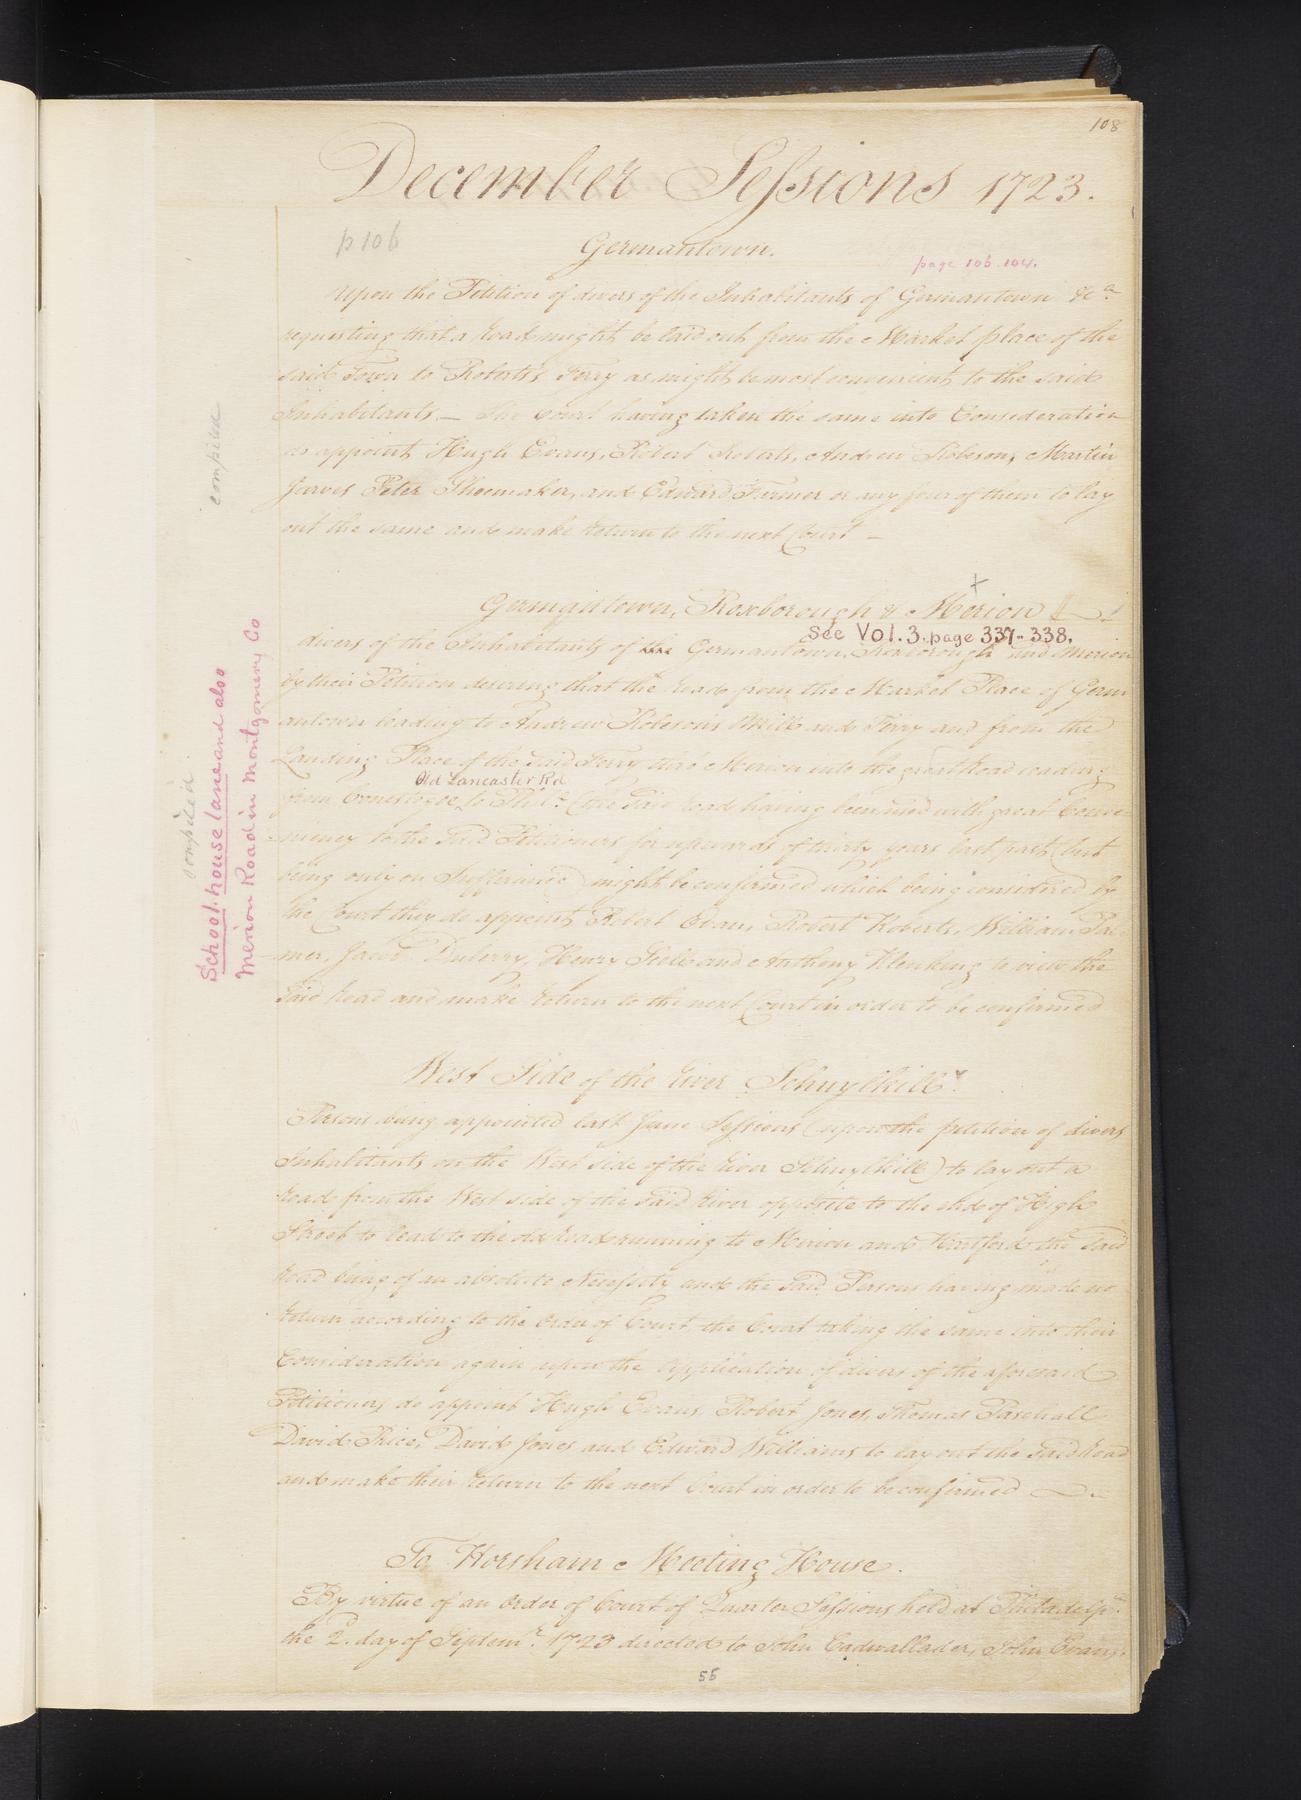 108
December Sessions 1723.
p 106
Germantown.
page 106. 104.
Upon the Petition of divers of the Inhabitants of Germantown &ca
requesting that a Road might be laid out from the Market place of the
said Town to Roberts's Ferry as might be most convenient to the said
Inhabitants — The Court having taken the same into Consideration
do appoint Hugh Evans, Robert Roberts, Andrew Robeson, Martin
Jarves Peter Shoemaker, and Edward Farmer or any four of them to lay
out the same and make Return to the next Court —
compiled
Germantown, Roxborough & Merion
See Vol. 3. page 337-338.
divers of the Inhabitants of the Germantown, Roxborough and Merion
by their Petition desiring that the Road from the Market Place of Germ
antown leading to Andrew Robeson's Mill and Ferry and from the
Landing Place of the said Ferry thro' Merion into the great Road leading
Old Lancaster Rd
from Conestogoe to Phila (the said Road having been used with great Conve-
niency to the said Petitioners for upwards of thirty years last past but
being only on Sufferance) might be confirmed which being considered by
the Court they do appoint Robert Evan, Robert Roberts, William Pal-
mer, Jacob Duberry, Henry and Anthony Klenking to view the
said Road and make Return to the next Court in order to be confirmed
compiled.
School-house lane and also
Merion Road in Montgomery Co
West Side of the River Schuylkill
Persons being appointed last June Sessions (upon the petition of divers
Inhabitants on the West side of the River Schuylkill) to lay out a
Road from the West side of the said River opposite to the end of High
Street to lead to the old Road running to Merion and Harford the said
Road being of an absolute Necessity and the said Persons having made no
Return according to the Order of Court, the Court taking the same into their
Consideration again upon the application of divers of the aforesaid
Petitioners do appoint Hugh Evans, Robert Jones, Thomas Paschall
David Price, David Jones and Edward Williams to lay out the said Road
and make their Return to the next Court in order to be confirmed
To Horsham Meeting House.
By virtue of an Order of Court of Quarter Sessions held at Philadelpa
the 2d day of Septemr 1723 directed to John Cadwallader, John Evans,
55